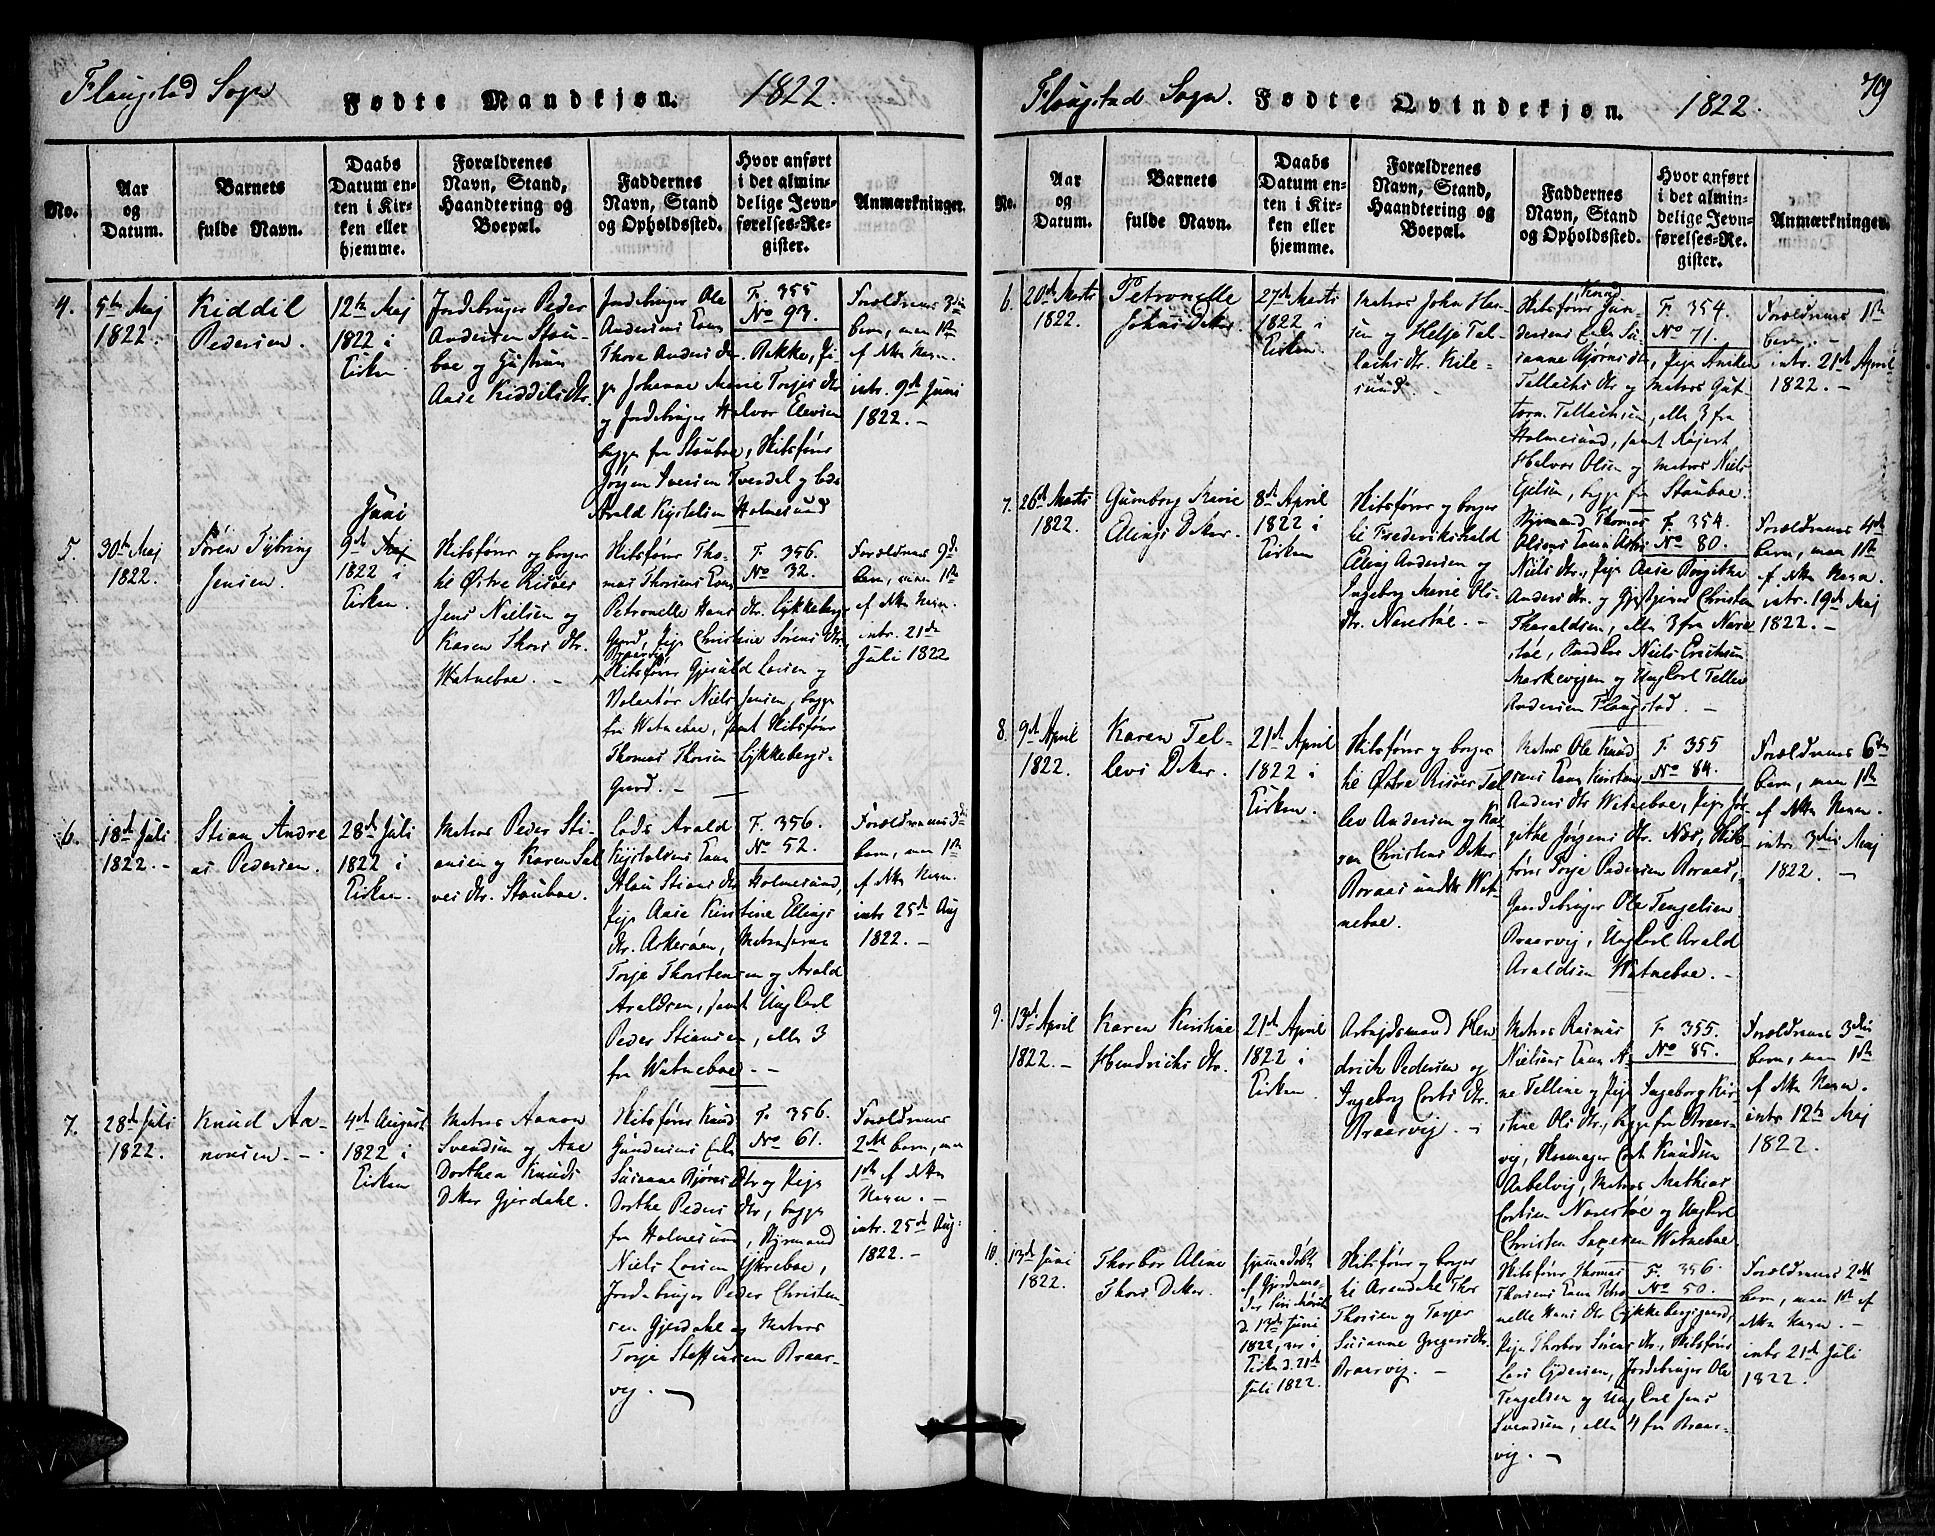 Flaugstad Sogn
Fødte Mandkjøn.
1822.
No.
Aar
og
Datum.
Barnets
fulde Navn.
Daabs
Datum en-
ten i Kir-
ken eller
hjemme.
Forældrenes
Navn, Stand,
Haandtering og
Boepæl.
Faddernes
Navn, Stand
og Opholdssted.
Hvor anført
i det almin-
delige Jevn-
førelses-Re-
gister.
Anmærkninger.
4.
5te Maj
1822.
Kiddil
Pedersen.
12te Maj
1822 i
Kirken.
Jordebruger Peder
Andersen Stau-
boe og Hustrue
Aase Kiddilsdtr.
Jordebruger Ole
Andersens Kone
Thore Andersdtr. Bakke, Pi-
ge Johanne Marie Torjisdtr
og Jordebruger Halvor Elevsen
begge fra Stauboe, Skibsfører
Jörgen Iversen Tverdal og Lods
Arald Kystelsen Holmesund
F. 355
No 93.
Forældrenes 3die
barn, men 1ste
af dette Navn.
intr. 9de Juni
1822. —
5.
30te Maj
1822.
Sören Tybring
Jensen.
Juni
9de Maj
1822 i
Kirken.
Skibsfører og borger
til Østre Risöer
Jens Nielsen og
Karen Thorsdtr.
Watneboe. —
Skibsfører Tho-
mas Thorsens Kone
Petronelle Hansdtr. Lykkeberg-
Gaard, Pige Christine Sörensdtr.
Braarvig
Skibsfører Gjeruld Larsen og
Volontör Niels Jensen, begge
fra Watneboe, samt Skibsfører
Thomas Thorsen Lykkebergs-
Gaard. —
F. 356.
No 32.
Forældrenes 9de
barn, men 1ste
af dette Navn.
intr. 21de
Juli 1822
6.
18de Juli
1822. -
Stian Andre
as Pedersen.
28de Juli
1822 i
Kirken.
Matros Peder Sti-
ansen og Karen Sal
vesdtr. Stauboe.
Lods Arald
Kystelsens Kone
Alau Stiansdtr Holmesund,
Pige Aase Kirstine Ellings
dtr. Askeröen, Matroserne
Torje Thorstensen og Arald
Araldsen, samt Ungkarl
Peder Stiansen, alle 3
fra Watneboe. —
F. 356.
No 52.
Forældrenes 3die
barn, men 1ste
af dette Navn.
intr 25de Aug
1822. —
7.
28de Juli
1822.
Knud Aa-
nonsen. —
4de August
1822 i
Kirken
Matros Aanon
Svendsen og Ane
Dorthea Knuds
Datter Gjerdahl.
Skibsfører Knud
Gundersens Enke
Susanne Björnsdtr og Pige
Dorthe Pedersdtr, begge
fra Holmesund, Styrmand
Niels Larsen Ykreboe,
Jordebruger Peder Christen-
sen Gjerdahl og Matros
Torje Steffensen Braar-
vig. —
F. 356.
No 61.
Forældrenes
2det barn, men
1ste af dette
Navn. —
intr. 25de Aug:
1822. —
Flaugstad Sogn.
Fødte Qvindekjøn.
1822.
79
No.
Aar
og
Datum.
Barnets
fulde Navn.
Daabs
Datum en-
ten i Kir-
ken eller
hjemme.
Forældrenes
Navn, Stand,
Haandtering og
Boepæl.
Faddernes
Navn, Stand
og Opholdssted.
Hvor anført
i det almin-
delige Jevn-
førelses-Re-
gister.
Anmærkninger.
6.
20de Marts
1822.
Petronelle
Johns Datter.
27de Marts
1822 i
Kirken.
Matros John Han-
sen og Helje Tel-
lachsdtr. Kile-
sund.
Knud
Skibsfører Gun-
dersens Enke Su-
sanne Björnsdtr, Pige Anniken
Tellachsdtr og Matros Gut-
torm Tellachsen, alle 3 fra
Holmesund, samt
Halvor Olsen og Matros Niels
Egelsen, begge fra Stauboe.
F. 354.
No 71.
Forældrenes 1ste
barn. —
intr. 21de April
1822. —
7.
26de Marts
1822.
Gunnborg Marie
Elings Datter.
8de April
1822 i
Kirken
Skibsfører og borger
til Frederikshald
Eling Andersen og
Ingeborg Marie Ols-
dtr. Narestöe. —
Styrmand Thomas
Olsens Kone
Nielsdtr., Pige Aase Birgitthe
Andersdtr. og Gjestgiver Christen
Tharaldsen, alle 3 fra Nare
stöe, Niels Erichsen
Markevigen og Ungkarl Tellev
Andersen Flaugstad. —
F. 354.
No 80.
Forældrenes 4de
barn, men 1ste
af dette Navn.
intr. 19de Maj
1822. —
8.
9de April
1822.
Karen Tel-
levs Datter.
21de April
1822 i
Kirken.
Skibsfører og borger
til Østre Risöer Tel
lev Andersen og Ka-
ren Christens Datter
Boraas under Wat-
neboe.
Matros Ole Knud
sens Kone Kirsten
Andersdtr Watneboe, Pige Jör-
githe Jörgensdtr. Næs, Skibs-
fører Torje Pedersen Boraas,
Jordebruger Ole Tengelsen
Braarvig, Ungkarl Arald
Araldsen Watneboe. —
F. 355
No 84.
Forældrenes 6te
barn, men 1ste
af dette Navn.
intr. 3die Maj
1822. —
9.
13de April
1822. —
Karen Kirstine
Hendrichsdtr.
21de April
1822 i
Kirken.
Arbejdsmand Hen
drich Pedersen og
Ingeborg Cortsdtr.
Braarvig. —
Matros Rasmus
Nielsens Kone A-
ne Tellene og Pige Ingeborg Kir-
stine Olsdtr., begge fra Braar-
vig, Cort Knudsen
Aabelvig, Matros Mathias
Cortsen Narestöe og Ungkarl
Christen Watneboe
F. 355.
No 85.
Forældrenes 3die
barn, men 1ste
af dette Navn.
intr. 12te Maj
1822.
10.
13de Juni
1822.
Thorbor Aline
Thors Datter.
hjemmedöbt
af Gjordemo-
der
d. 13de Juni
1822, var i
Kirken d. 21de
Juli 1822.
Skibsfører og borger
til Arendahl Thor
Thorsen og Torger
Susanne Gregersdtr.
Braarvig. —
Skibsfører Thomas
Thorsens Kone Petro
nelle Hansdtr Lykkebergsgaard,
Pige Thorbor Sörensdtr., Skibsfører
Lars Gjdersen, Jordebruger Ole
Tengelsen og Ungkarl Jens
Svendsen, alle 4 fra Braar-
vig. —
F. 356.
No 50.
Forældrenes 2det
barn, men 1ste af
dette Navn. —
intr 21de Juli
1822.